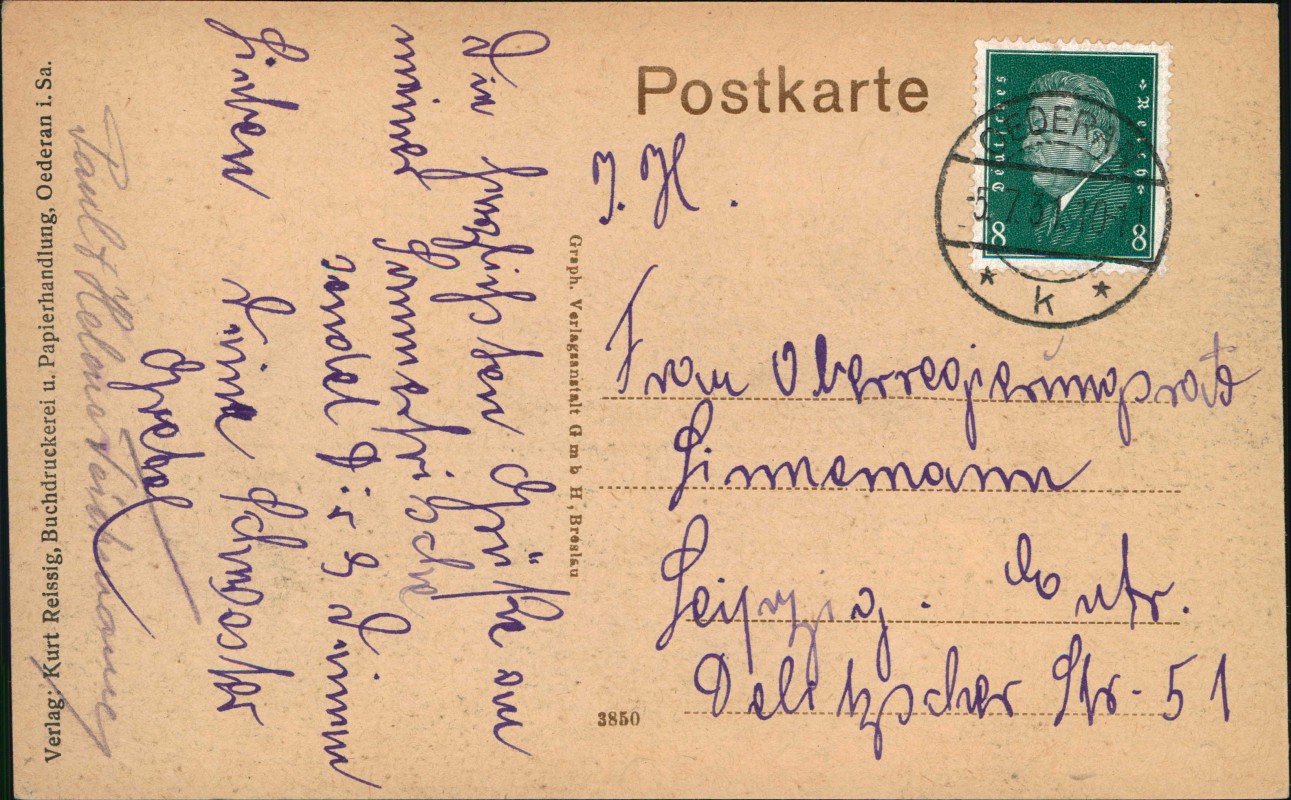 Postkarte
Deutsches Reich
8 8
OEDERAN
5.7.31.10-11
* k *
J. H.
Frau Oberregierungsrats
Linnemann
Leipzig. Eutr.
Delitzscher Str. 51
Die herzlichsten Grüße aus
meiner
sendet Dir u. Deinen
Lieben Deine Schwester
Gretel
Paul &
Graph. Verlagsanstalt G m b H, Breslau
3850
Verlag: Kurt Reissig, Buchdruckerei u. Papierhandlung, Oederan i. Sa.